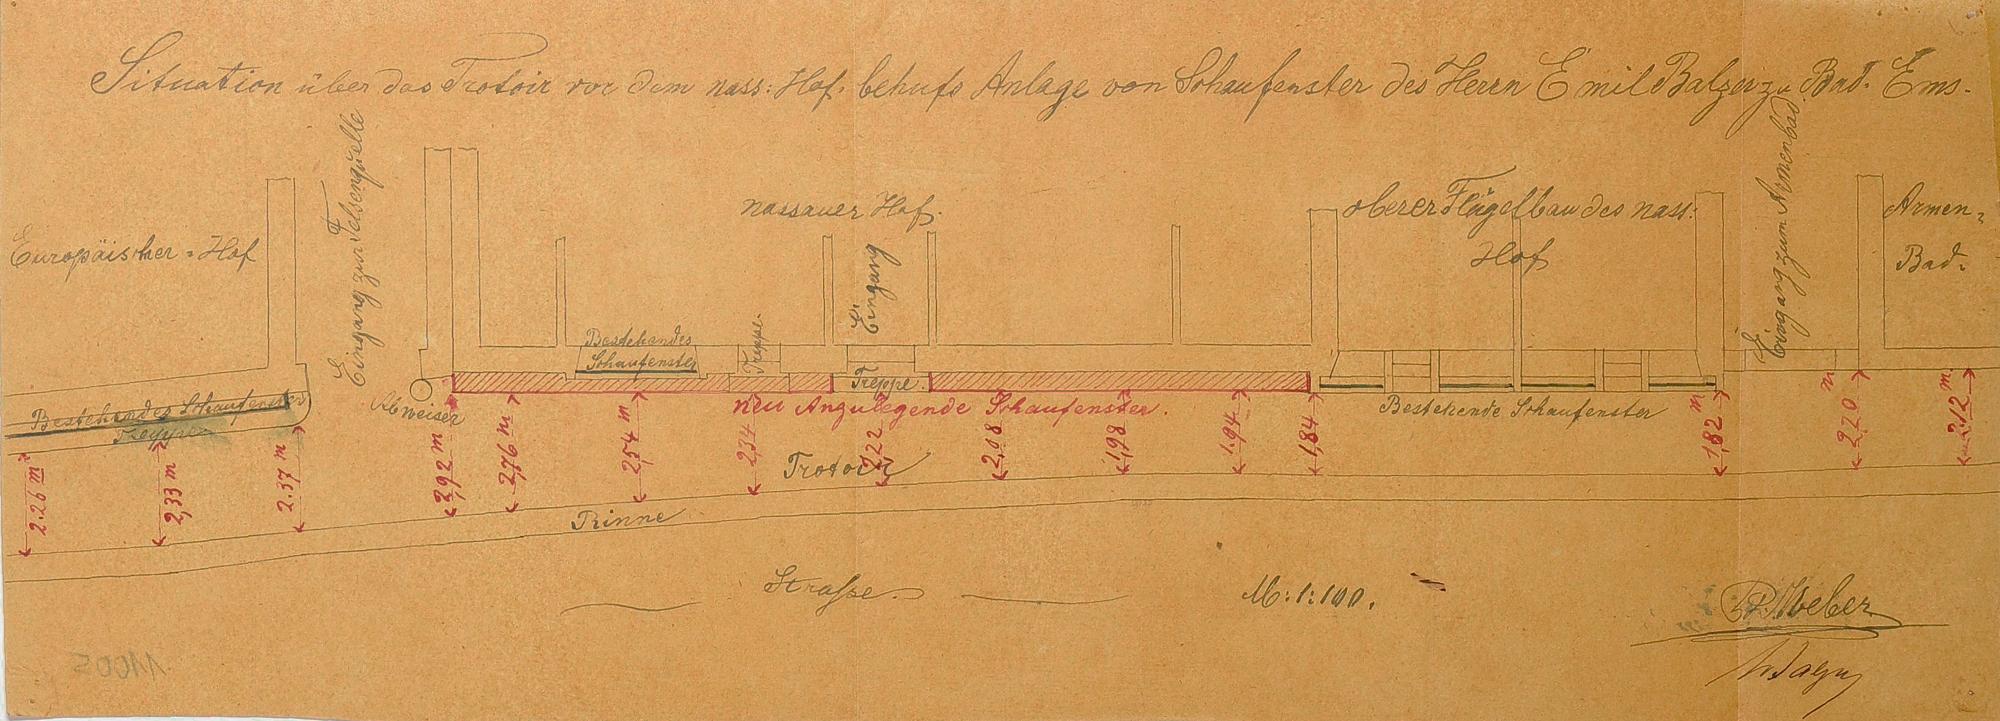 Situation über das Trotoir vor dem nass: Hof. behufs Anlage von Schaufenster des Herrn Emil Balzer zu Bad. Ems.
Europäischer-Hof
Eingang zur Felsenquelle
nassauer Hof.
Eingang
oberer Flügelbau des nass:
Hof
Eingang zum Armenbad
Armen-
Bad.
Bestehendes
Schaufenster
Treppe.
Treppe.
Bestehendes Schaufenster
Treppe
Abweiser
neu Anzulegende Schaufenster.
Bestehende Schaufenster
2.26 m
2,33 m
2.37 m
2,92 m
2,76 m
2,54 m
2,34
2,22
2,08
1,98
1.94
1,84
1,82 m
2,20 m
2,12 m
Trotoir
Rinne
Strasse.
M: 1:100.
P. Weber
11002